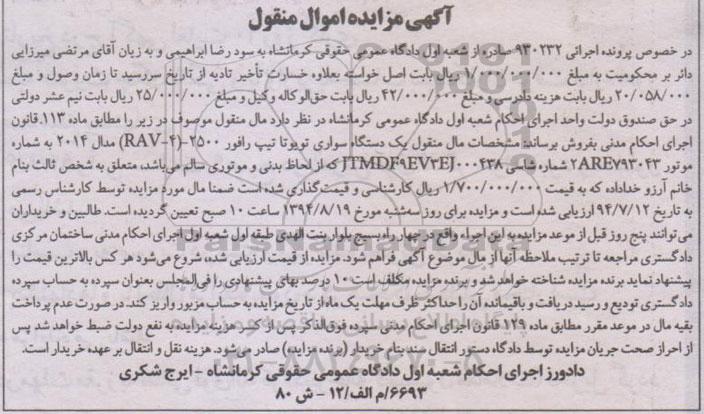 آگهی مزایده اموال منقول
در خصوص پرونده اجرائی ۹۳۰۲۳۲ صادره از شعبه اول دادگاه عمومی حقوقی کرمانشاه به سود رضا ابراهیمی و به زیان آقای مرتضی میرزایی
دائر بر محکومیت به مبلغ ۱/۰۰۰/۰۰۰/۰۰۰ ریال بابت اصل خواسته بعلاوه خسارت تأخیر تادیه از تاریخ سررسید تا زمان وصول و مبلغ
۲۰/۰۵۸/۰۰۰ ریال بابت هزینه دادرسی و مبلغ ۴۲/۰۰۰/۰۰۰ ریال بابت حق‌الوکاله وکیل و مبلغ ۲۵/۰۰۰/۰۰۰ ریال بابت نیم عشر دولتی
در حق صندوق دولت واحد اجرای احکام شعبه اول دادگاه عمومی کرمانشاه در نظر دارد مال منقول موصوف در زیر را مطابق ماده ۱۱۳ قانون
اجرای احکام مدنی بفروش برساند: مشخصات مال منقول یک دستگاه سواری تویوتا تیپ رافور ۲۵۰۰-(RAV-۴) مدل ۲۰۱۴ به شماره
موتور ۲ARE۷۹۳۰۴۳ شماره شاسی JTMDF۹EV۳EJ۰۰۰۴۳۸ که از لحاظ بدنی و موتوری سالم می‌باشد، متعلق به شخص ثالث بنام
خانم آرزو خداداده که به قیمت ۱/۷۰۰/۰۰۰/۰۰۰ ریال کارشناسی و قیمت‌گذاری شده است ضمنا مال مورد مزایده توسط کارشناس رسمی
به تاریخ ۹۴/۷/۱۲ ارزیابی شده است و مزایده برای روز سه‌شنبه مورخ ۱۳۹۴/۸/۱۹ ساعت ۱۰ صبح تعیین گردیده است. طالبین و خریداران
می‌توانند پنج روز قبل از موعد مزایده به این اجراء واقع در چهار راه بسیج بلوار بنت الهدی طبقه اول شعبه اول اجرای احکام مدنی ساختمان مرکزی
دادگستری مراجعه تا ترتیب ملاحظه آنها از مال موضوع آگهی فراهم شود. مزایده از قیمت ارزیابی شده، شروع می‌شود هر کس بالاترین قیمت را
پیشنهاد نماید برنده مزایده شناخته خواهد شد و برنده مزایده مکلف است ۱۰ درصد بهای پیشنهادی را فی‌المجلس بعنوان سپرده به حساب سپرده
دادگستری تودیع و رسید دریافت و باقیمانده آن را حداکثر ظرف مهلت یک ماه از تاریخ مزایده به حساب مزبور واریز کند. در صورت عدم پرداخت
بقیه مال در موعد مقرر مطابق ماده ۱۲۹ قانون اجرای احکام مدنی سپرده فوق‌الذکر پس از کسر هزینه مزایده به نفع دولت ضبط خواهد شد پس
از احراز صحت جریان مزایده توسط دادگاه دستور انتقال سند بنام خریدار (برنده مزایده) صادر می‌شود. هزینه نقل و انتقال بر عهده خریدار است.
دادورز اجرای احکام شعبه اول دادگاه عمومی حقوقی کرمانشاه - ایرج شکری
۶۶۹۳/م الف/۱۲ - ش ۸۰
ParsNamadData